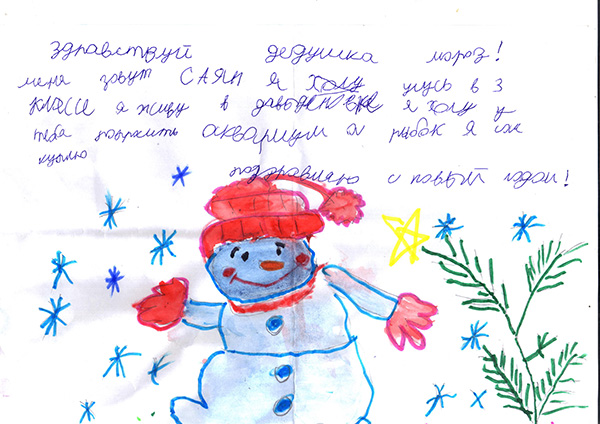 здравствуй дедушка мороз!
меня зовут САЯН я хочу учусь в 3
классе я живу в я хочу у
тебя попросить аквариум и рыбок я их
куплю
поздравляю с новый годом!